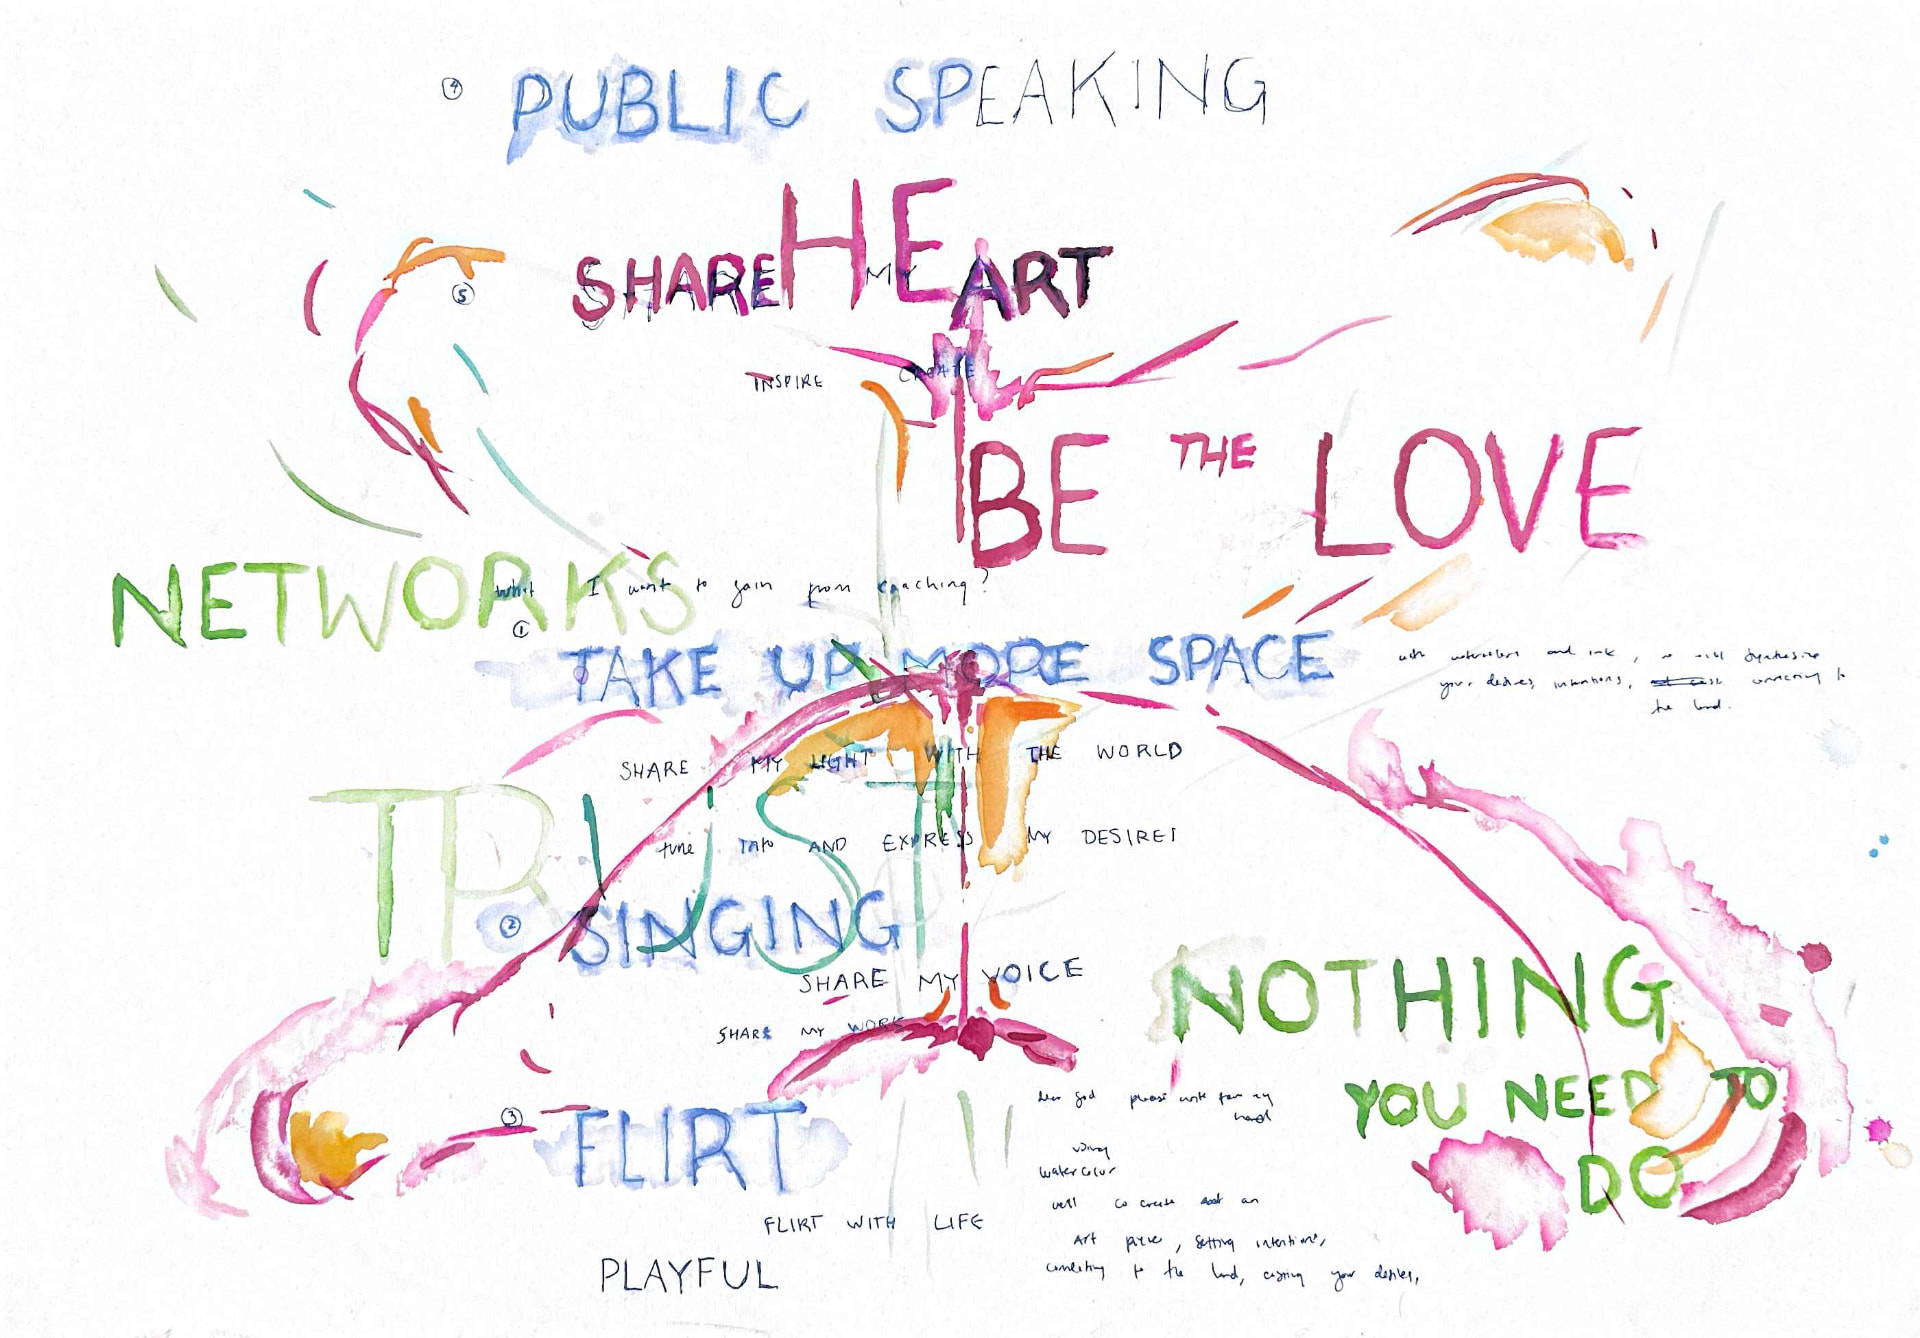 ④ PUBLIC SPEAKING
⑤ SHARE MY HEART
INSPIRE CREATE
BE THE LOVE
NETWORKS
What I want to gain from coaching?
① TAKE UP MORE SPACE
with watercolors and ink, synthesize
your desires, intentions, connecting to
the land.
SHARE MY LIGHT WITH THE WORLD
TRUST
tune INTO AND EXPRESS MY DESIRES
② SINGING
SHARE MY VOICE
SHARE MY WORK
NOTHING
YOU NEED TO
DO
③ FLIRT
FLIRT WITH LIFE
PLAYFUL
dear god please write from my
hand
using
watercolor
we'll co create an
Art piece, setting intentions,
connecting to the land, your desires,